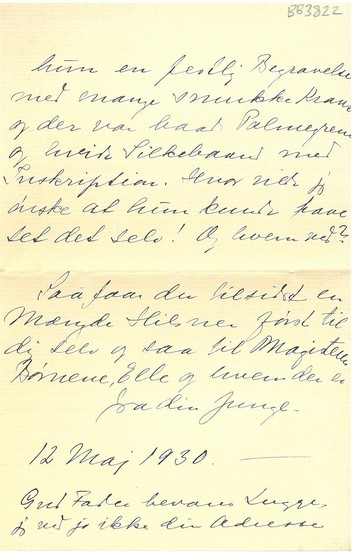 BB3822
hun en festlig Begravelse
med mange smukke Kranse
og der var baade Palmegrene
og hvide Silkebaand med
Inskription. Hvor vilde jeg
ønske at hun kunde have
set det selv! Og hvem ved?
Saa faar du tilsidst en
Mængde Hilsner først til
dig selv og saa til Magisteren
Børnene, Elle og hvem der er
fra din Junge.
12 Maj 1930.
Gud Fader bevare Lugge,
jeg ved jo ikke din Adresse